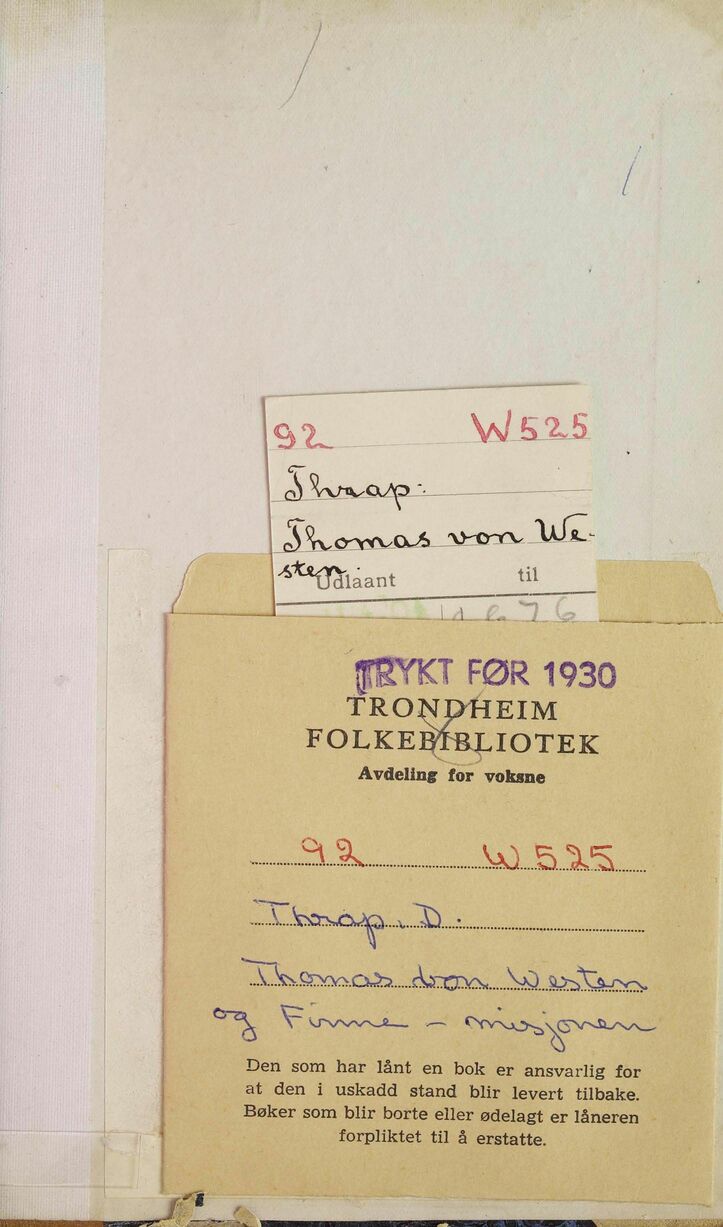 92 W525
Thrap:
Thomas von We-
sten.
Udlaant til
TRYKT FØR 1930
TRONDHEIM
FOLKEBIBLIOTEK
Avdeling for voksne
92 W525
Thrap, D.
Thomas von Westen
og Finne - misjonen
Den som har lånt en bok er ansvarlig for
at den i uskadd stand blir levert tilbake.
Bøker som blir borte eller ødelagt er låneren
forpliktet til å erstatte.